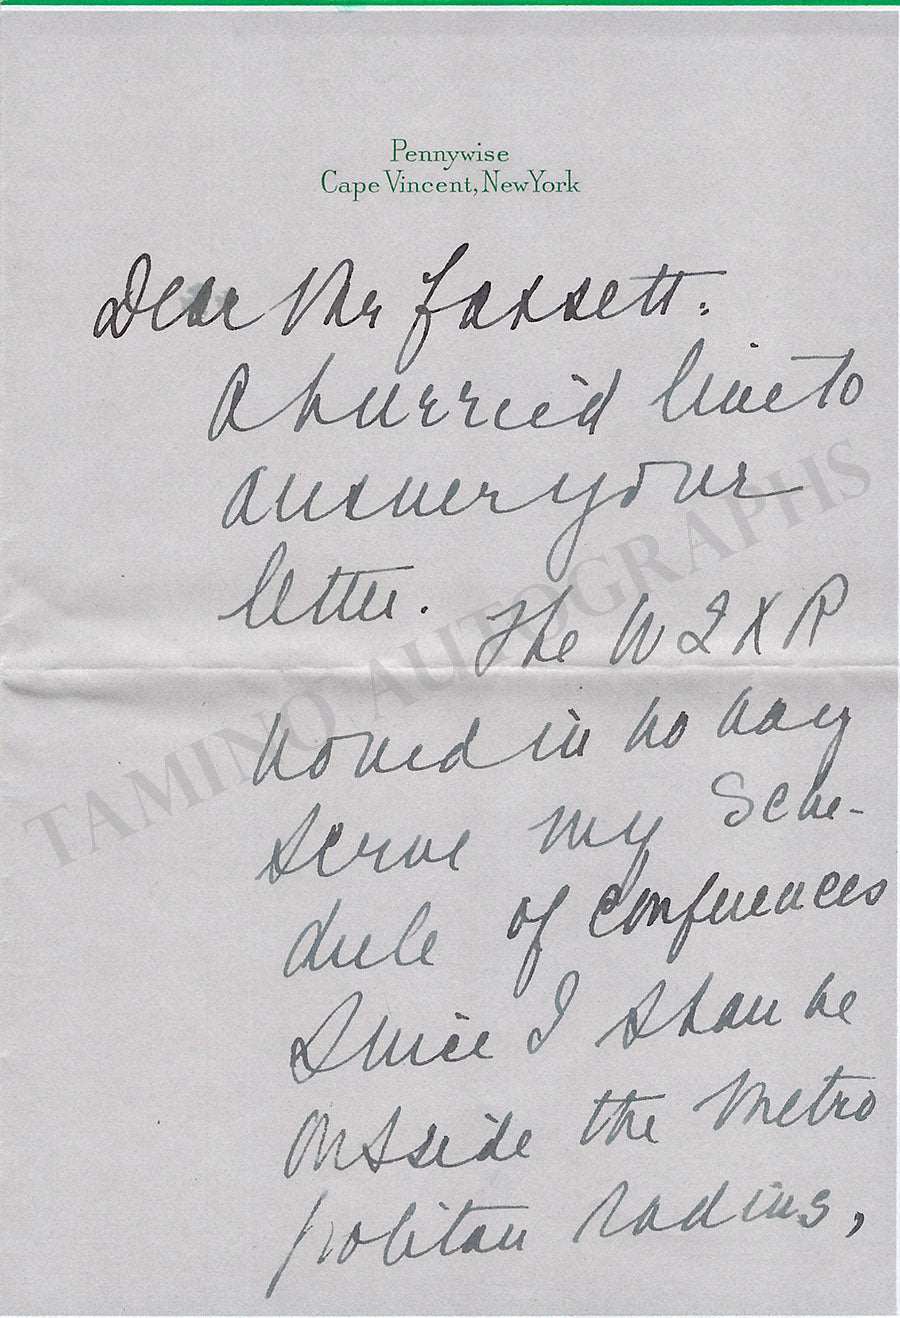 Pennywise
Cape Vincent, New York
Dear Mr Fassett:
A hurried line to
answer your
letter. The WQXR
would in no way
serve my Sche-
dule of conferences
Since I shall be
outside the Metro
politan radius,
TAMINO AUTOGRAPHS